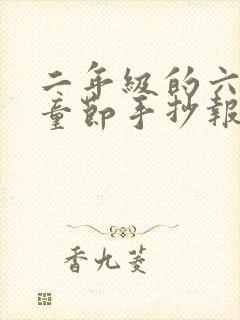 二年級的六
童節手抄報
香九菱